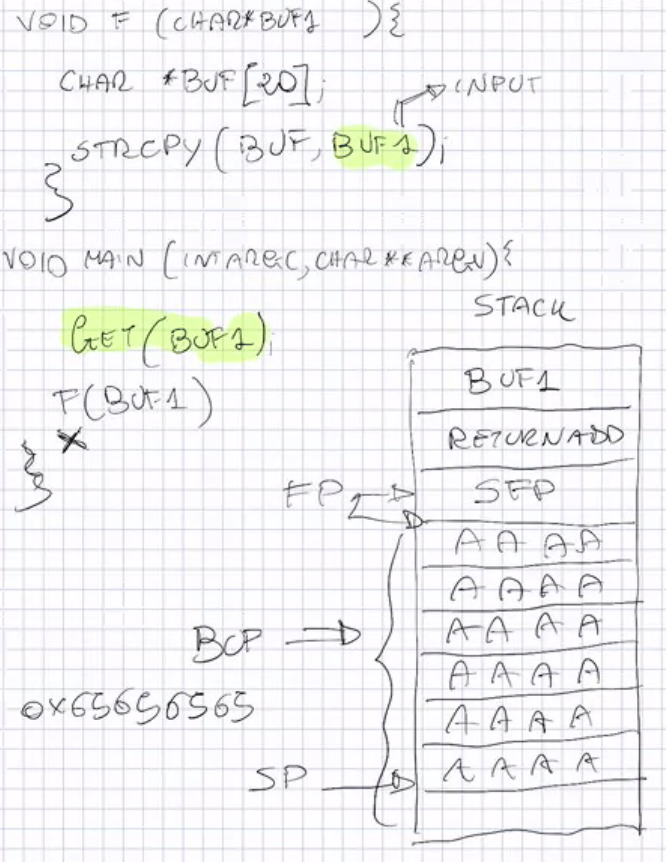 VOID F (CHAR*BUF1 ){
CHAR *BUF[20];
INPUT
STRCPY(BUF, BUF1);
}
VOID MAIN (INT ARGC, CHAR **ARGV){
GET(BUF1);
F(BUF1)
}
STACK
BUF1
RETURN ADD
FP
SFP
A A A A
A A A A
BOF
A A A A
A A A A
0x65656565
A A A A
SP
A A A A